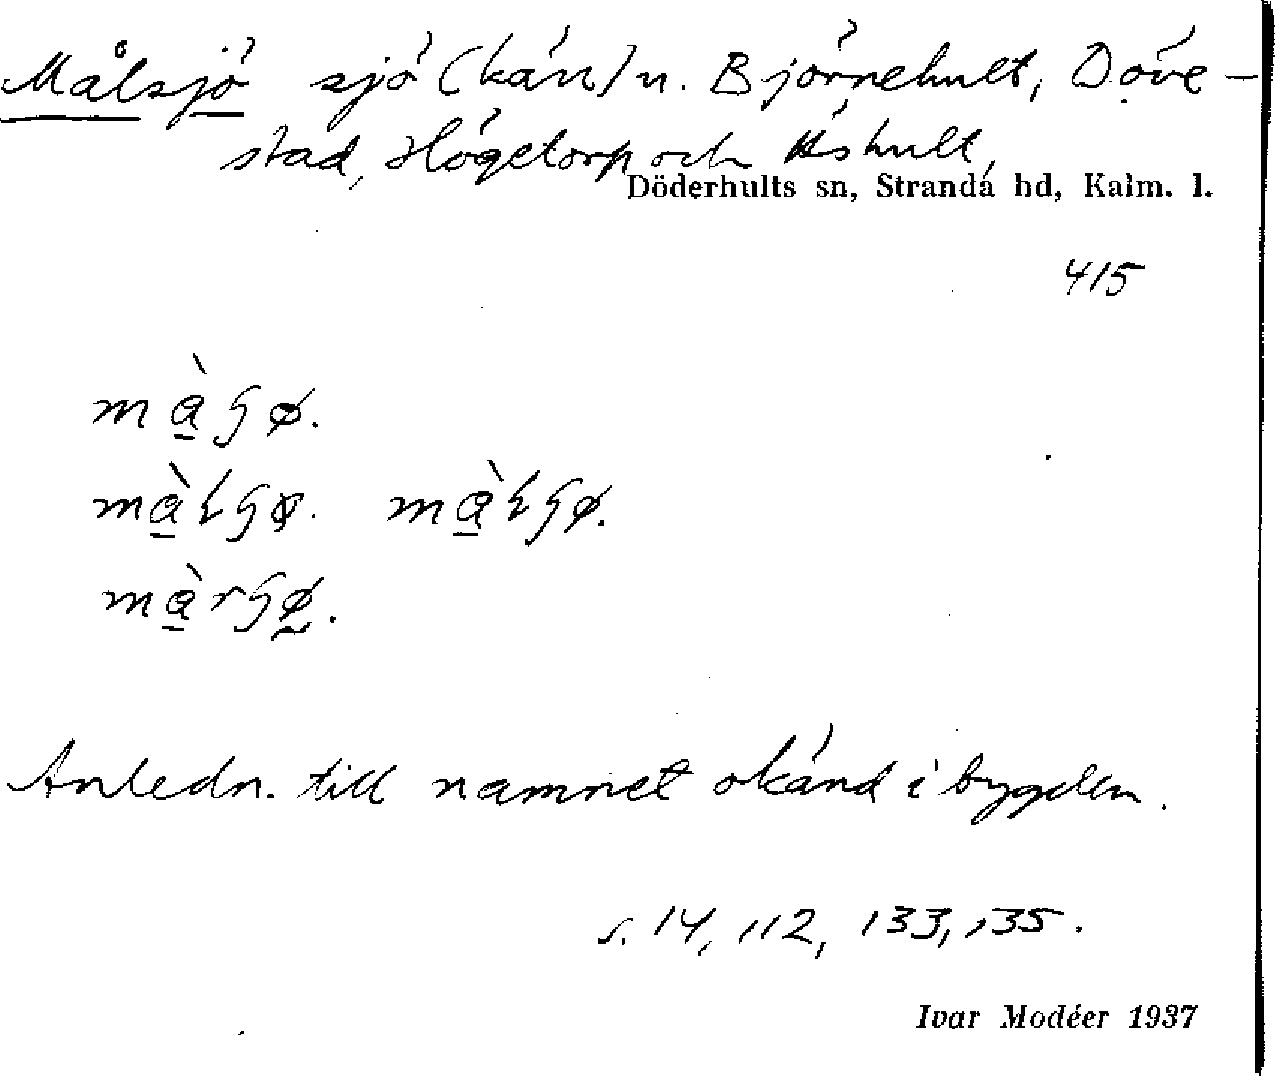 Målsjö sjö (kärr) n. Björnehult, Döve-
stad, Högetorp och Äshult,
Döderhults sn, Stranda hd, Kalm. l.
415
Anledn. till namnet okänd i bygden.
s. 14, 112, 133, 135.
Ivar Modéer 1937